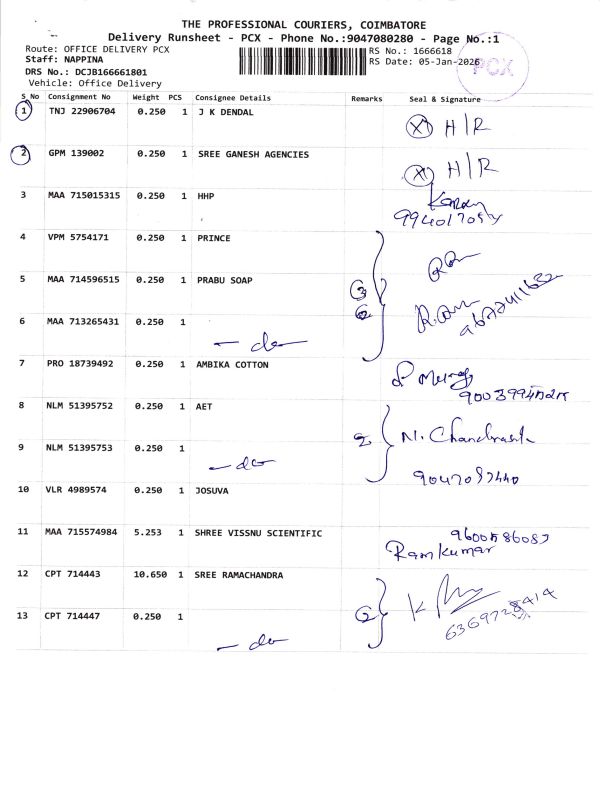 THE PROFESSIONAL COURIERS, COIMBATORE
Delivery Runsheet - PCX - Phone No.:9047080280 - Page No.:1
Route: OFFICE DELIVERY PCX RS No.: 1666618
Staff: NAPPINA RS Date: 05-Jan-2026 PCX
DRS No.: DCJB166661801
Vehicle: Office Delivery
S No Consignment No Weight PCS Consignee Details Remarks Seal & Signature
1 TNJ 22906704 0.250 1 J K DENDAL X H/R
2 GPM 139002 0.250 1 SREE GANESH AGENCIES X H/R
3 MAA 715015315 0.250 1 HHP
4 VPM 5754171 0.250 1 PRINCE
5 MAA 714596515 0.250 1 PRABU SOAP
6 MAA 713265431 0.250 1 - do
7 PRO 18739492 0.250 1 AMBIKA COTTON
8 NLM 51395752 0.250 1 AET 2 N. Chandrasek
9 NLM 51395753 0.250 1 - do
10 VLR 4989574 0.250 1 JOSUVA
11 MAA 715574984 5.253 1 SHREE VISSNU SCIENTIFIC
Ramkumar
12 CPT 714443 10.650 1 SREE RAMACHANDRA 2
13 CPT 714447 0.250 1 - do